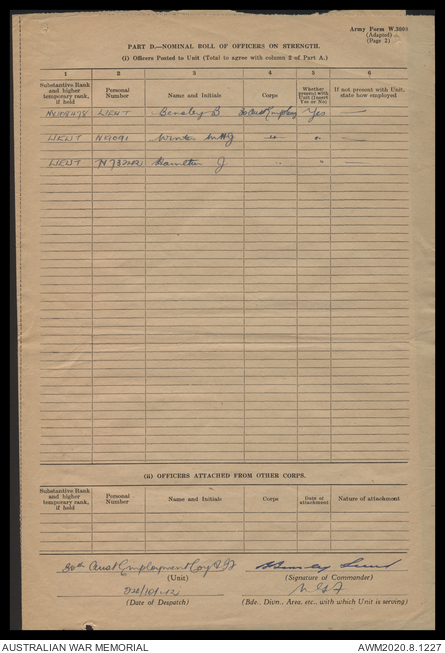 Army Form W.3008
(Adapted)
(Page 2)
PART D.—NOMINAL ROLL OF OFFICERS ON STRENGTH.
(i) Officers Posted to Unit (Total to agree with column 2 of Part A.)
1 2 3 4 5 6
Substantive Rank and higher temporary rank, if held
Personal Number
Name and Initials
Corps
Whether present with Unit (Insert Yes or No)
If not present with Unit, state how employed
LIEUT Beasley B Yes —
LIEUT " " —
LIEUT Hamilton J " " —
(ii) OFFICERS ATTACHED FROM OTHER CORPS.
Substantive Rank and higher temporary rank, if held
Personal Number
Name and Initials
Corps
Date of attachment
Nature of attachment
Aust Employment Coy
(Unit)
(Signature of Commander)
(Date of Despatch)
(Bde., Divn., Area, etc., with which Unit is serving)
AUSTRALIAN WAR MEMORIAL
AWM2020.8.1227